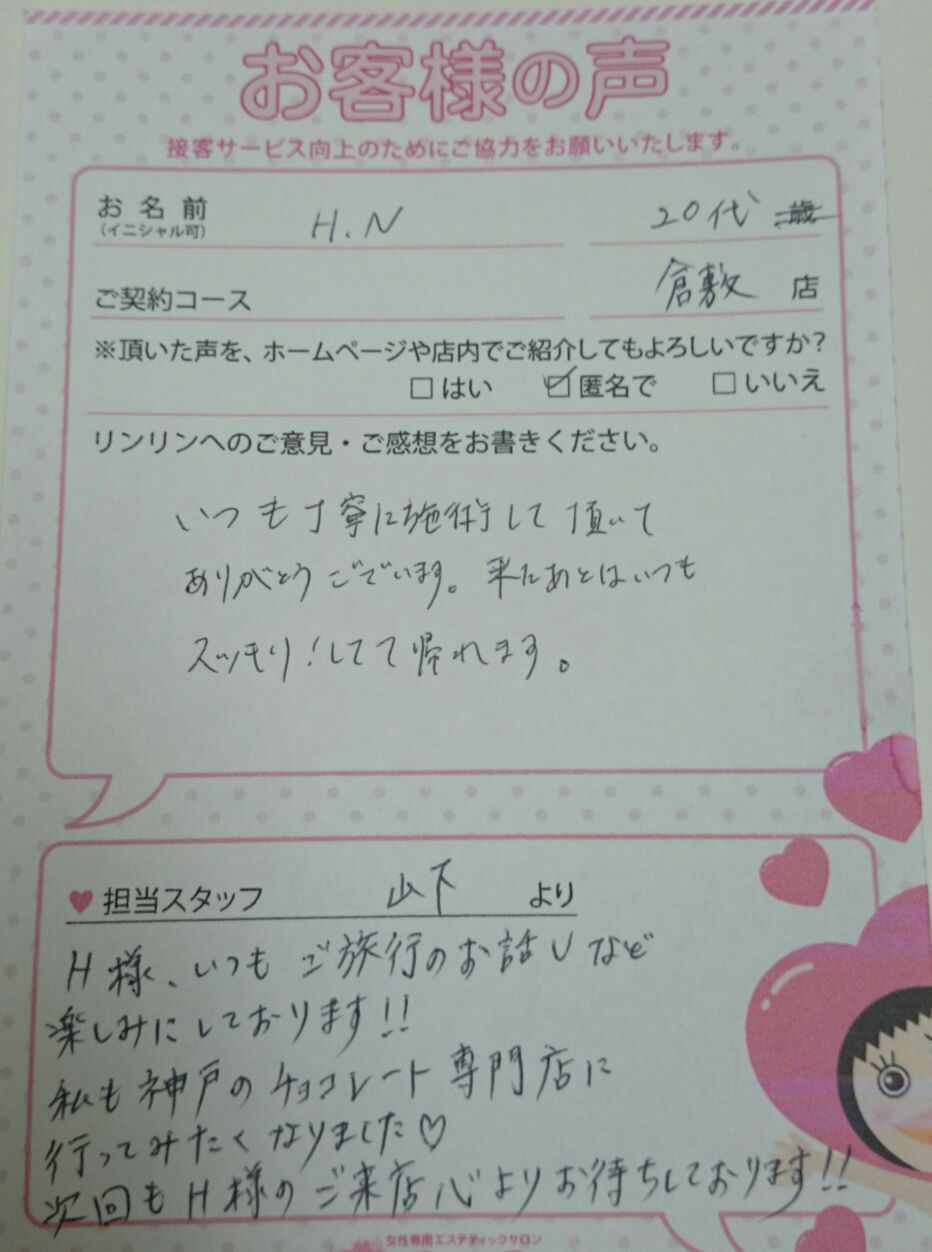 お客様の声
接客サービス向上のためにご協力をお願いいたします。
お名前 H.N 20代 歳
(イニシャル可)
ご契約コース 倉敷 店
※頂いた声を、ホームページや店内でご紹介してもよろしいですか?
□はい ☑匿名で □いいえ
リンリンへのご意見・ご感想をお書きください。
いつも丁寧に施術して頂いて
ありがとうございます。来たあとはいつも
スッキリ!してて帰れます。
♥担当スタッフ 山下 より
H様、いつもご旅行のお話しなど
楽しみにしております!!
私も神戸のチョコレート専門店に
行ってみたくなりました♡
次回もH様のご来店心よりお待ちしております!!
女性専用エステティックサロン